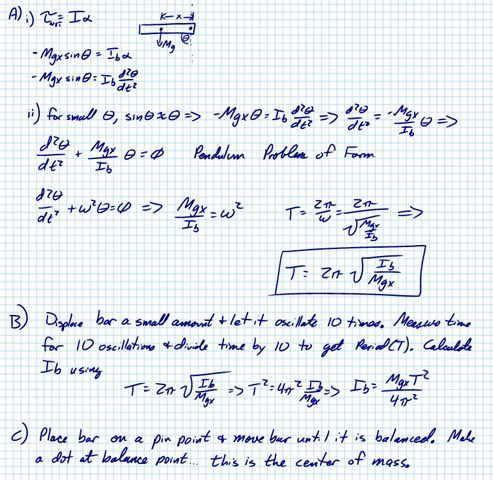 A) i) τnet = Iα
k- x -›
Mg
θ
-Mgx sinθ = Ibα
-Mgx sinθ = Ib d²θ/dt²
ii) for small θ, sinθ≈θ => -Mgxθ = Ib d²θ/dt² => d²θ/dt² = -Mgx/Ib θ =>
d²θ/dt² + Mgx/Ib θ = 0 Pendulum Problem of Form
d²θ/dt² + ω²θ = 0 => Mgx/Ib = ω² T = 2π/ω = 2π/√(Mgx/Ib) =>
T = 2π √(Ib/Mgx)
B) Displace bar a small amount & let it oscillate 10 times. Measure time
for 10 oscillations & divide time by 10 to get Period(T). Calculate
Ib using
T = 2π √(Ib/Mgx) => T² = 4π² Ib/Mgx => Ib = MgxT²/4π²
c) Place bar on a pin point & move bar until it is balanced. Make
a dot at balance point... this is the center of mass.